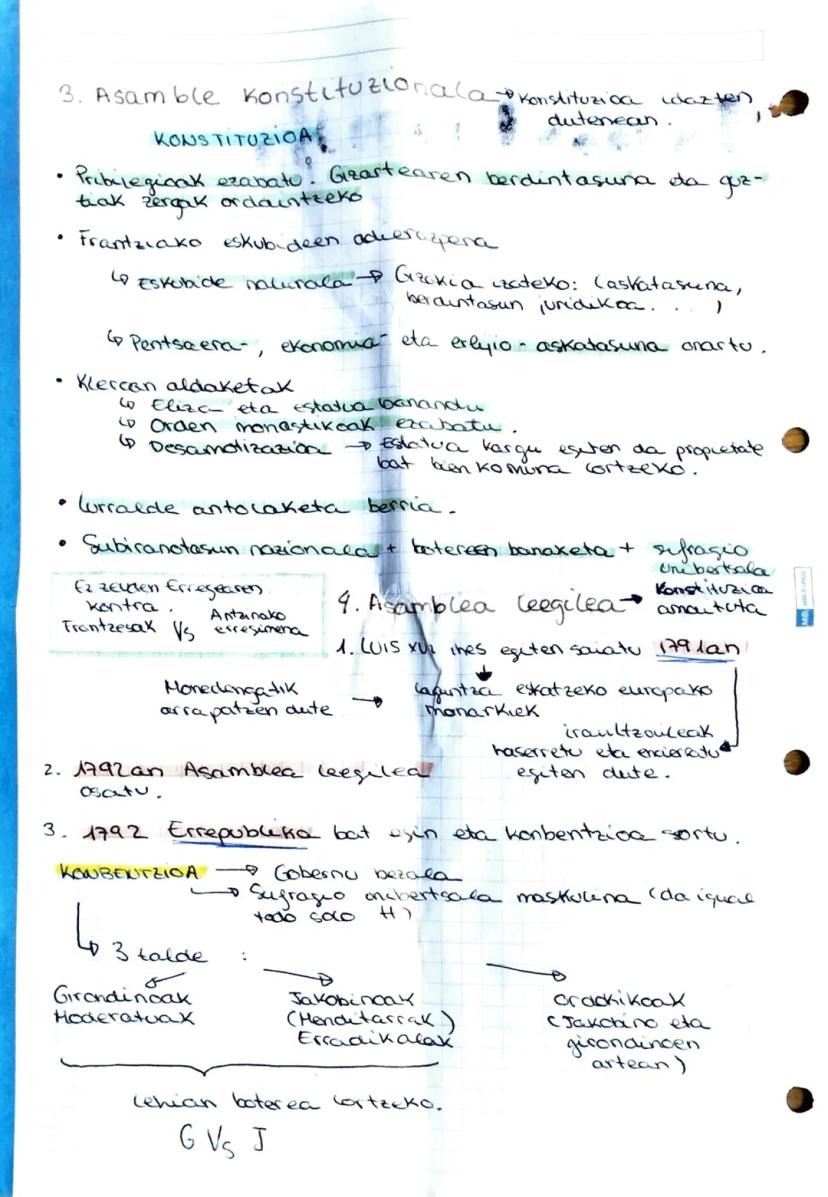 3. Asamble Konstituzionala → Konstituzioa idazten
dutenean.
KONSTITUZIOA:
• Pribilegioak ezabatu: Gizartearen berdintasuna eta guz-
tiak zergak ordaintzeko
• Frantziako eskubideen adierazpena
↳ Eskubide naturala → Gizakia izateko: (askatasuna,
berdintasun juridikoa . . . )
↳ Pentsaera-, ekonomia- eta erlijio-askatasuna onartu.
• Kleroan aldaketak
↳ Eliza eta estatua banandu
↳ Orden monastikoak ezabatu.
↳ Desamotizazioa → Estatua kargu egiten da propietate
bat bien komuna lortzeko.
• Lurralde antolaketa berria.
• Subiranotasun nazionala + botereen banaketa + sufragio
unibertsala
Ez zeuden Erregearen
kontra.
Frantzesak Vs Antzinako
erregimena
4. Asamblea leegilea → Konstituzioa
amaituta
1. LUIS XVI ihes egiten saiatu 1791an
Monedengatik
arrapatzen dute → laguntza eskatzeko europako
monarkiek
iraultzaileak
haserretu eta encierratu
egiten dute.
2. 1792an Asamblea leegilea
osatu.
3. 1792 Errepublika bat egin eta konbentzioa sortu.
KONBENTZIOA → Gobernu bezala
→ Sufragio unibertsala maskulina (da igual
todo solo H)
↳ 3 talde :
Girondinoak
Moderatuak
Jakobinoak
(Menditarrak)
Erradikalak
Ordokikoak
(Jakobino eta
girondinoen
artean)
Lehian boterea lortzeko.
G Vs J